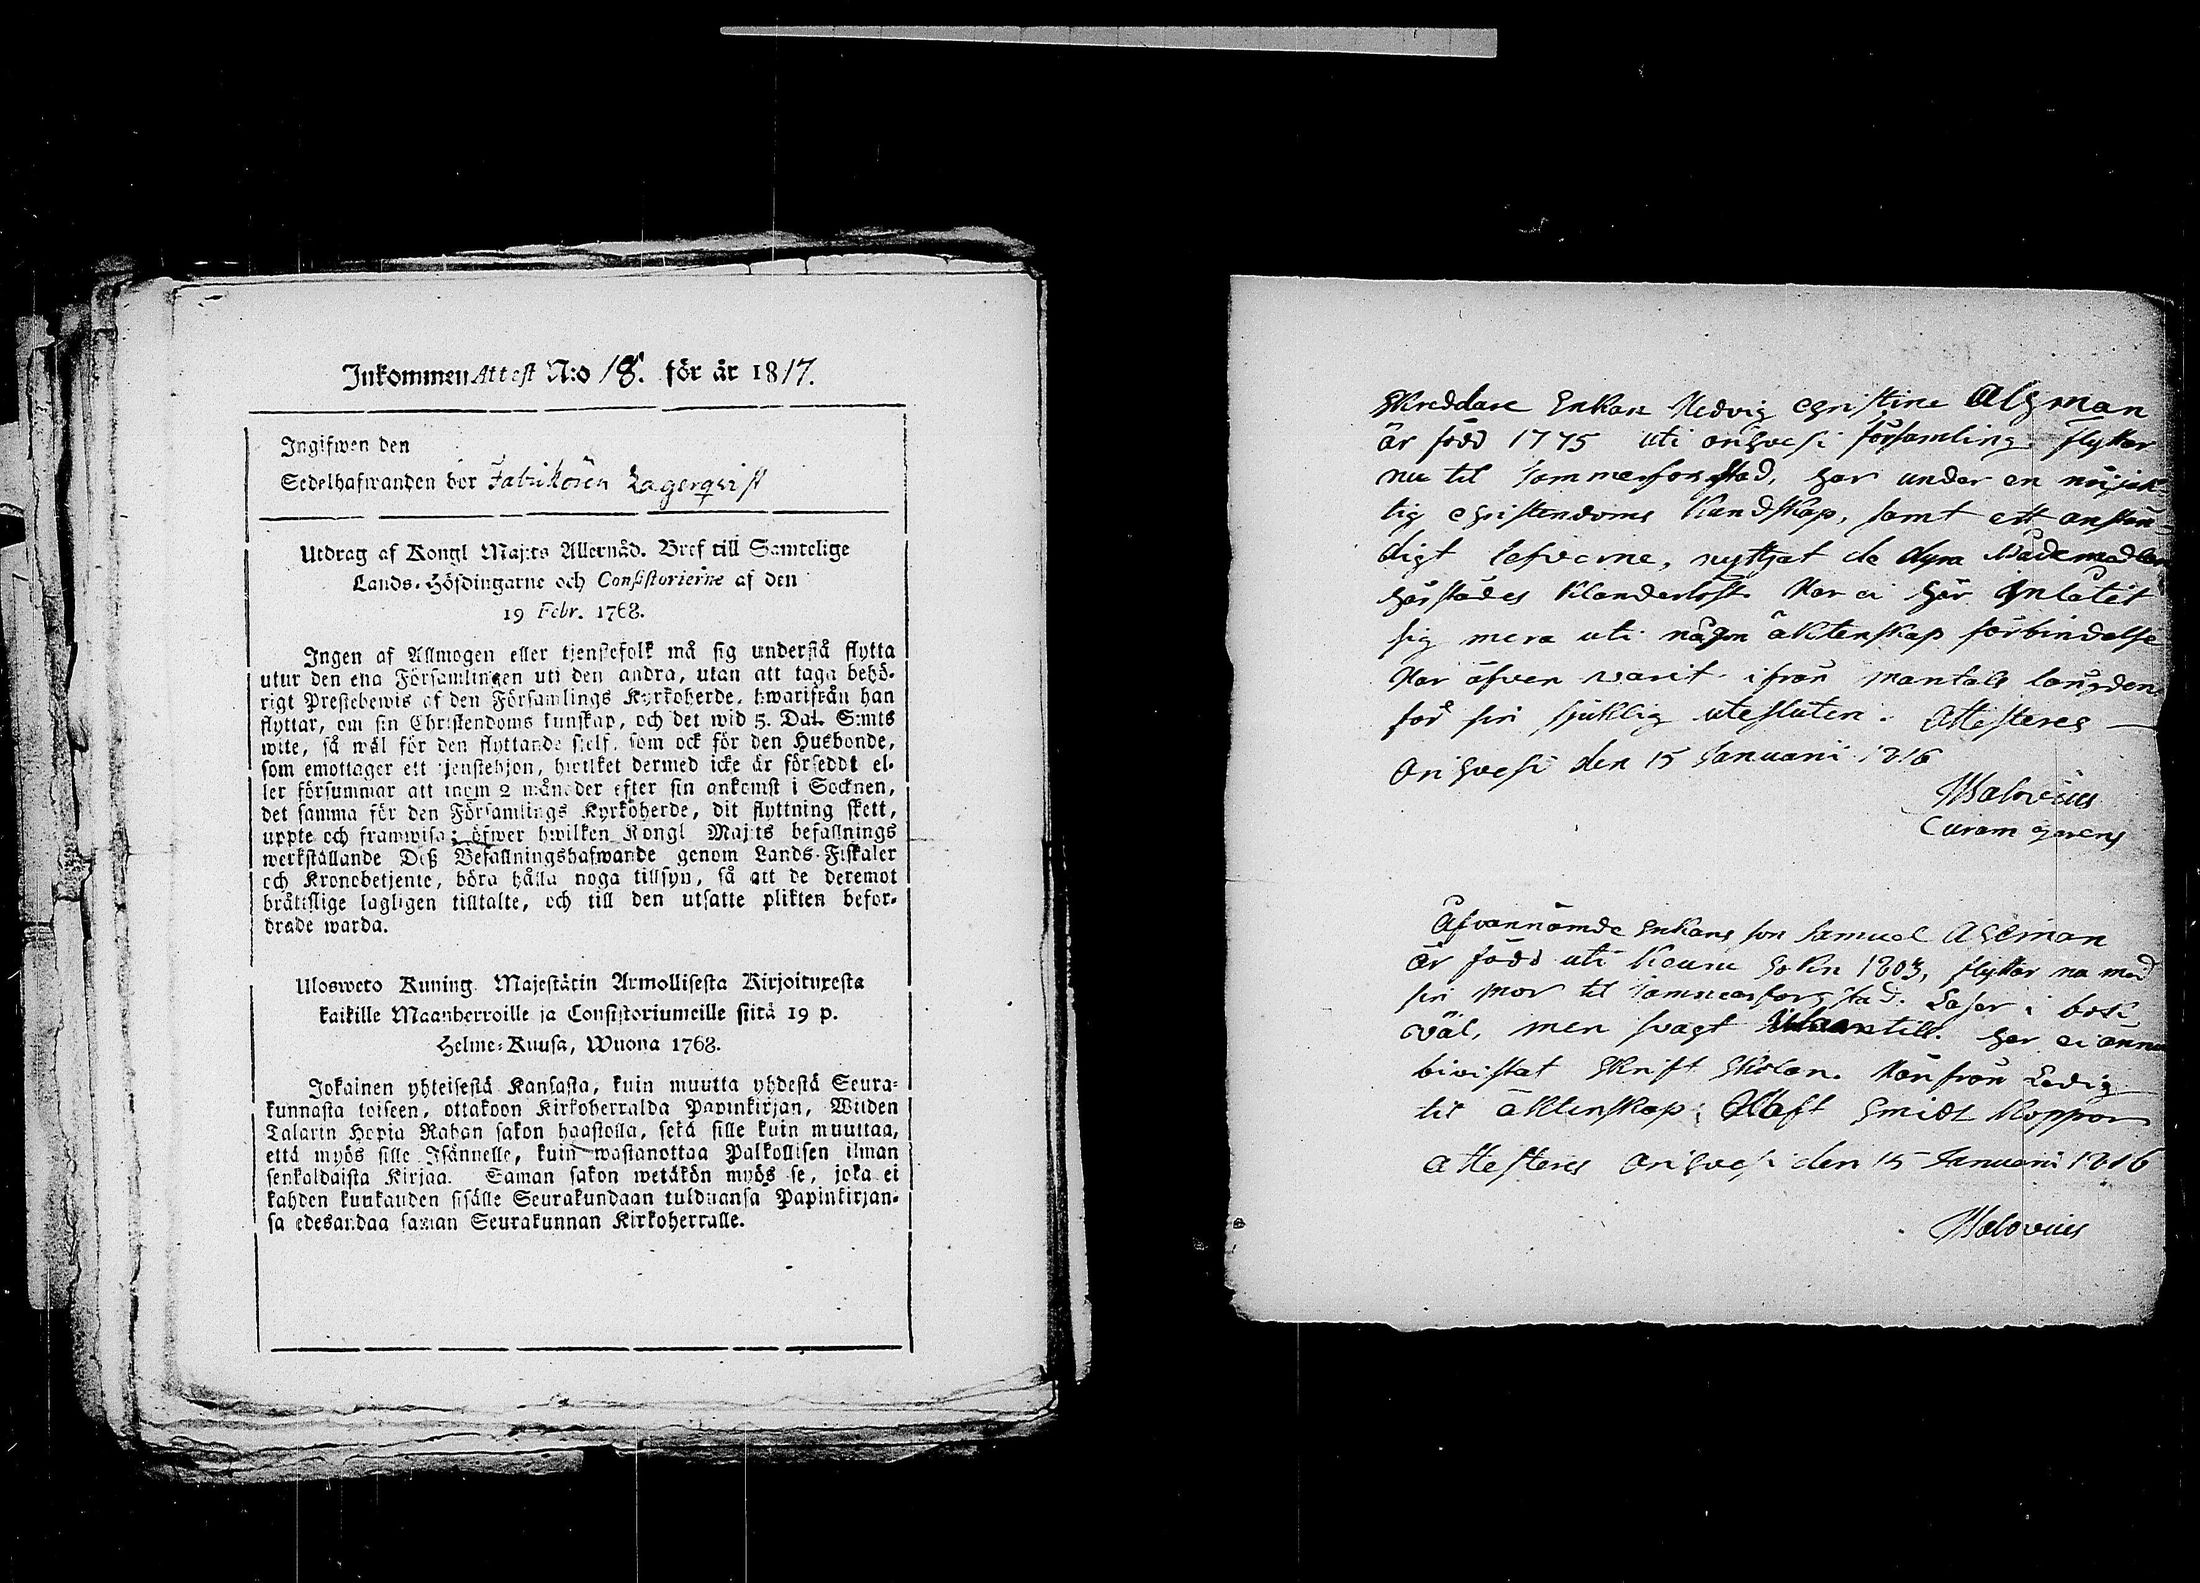 Inkommen Attest N:o 18. för år 1817.
Ingifwen den
Sedelhafwanden bor Fabrikören Lagerqvist
Utdrag af Kongl Maj:ts Allernåd. Bref till Samtelige
Lands-Höfdingarne och Consistorierne af den
19 Febr. 1768.
Ingen af Allmogen eller tjenstefolk må sig understå flytta
utur den ena Församlingen uti den andra, utan att taga behö-
rigt Prestebewis af den Församlings Kyrkoherde, hwarifrån han
flyttar, om sin Christendoms kunskap, och det wid 5. Dal. S:mts
wite, så wäl för den flyttande sjelf, som ock för den Husbonde,
som emottager ett tjenstehjon, hwilket dermed icke är försedt el-
ler försummar att inom 2 månader efter sin ankomst i Socknen,
det samma för den Församlings Kyrkoherde, dit flyttning skett,
uppte och framwisa; öfwer hwilken Kongl Maj:ts befallnings
werkställande Deß Befallningshafwande genom Lands-Fiskaler
och Kronobetjente, böra hålla noga tillsyn, så att de deremot
bråttslige lagligen tilltalte, och till den utsatte plikten befor-
drade warda.
Ulosweto Kuning. Majestätin Armollisesta Kirjoituxesta
kaikille Maanherroille ja Consistoriumeille siitä 19 p.
Helme-Kuusa, Wuona 1768.
Jokainen yhteisestä Kansasta, kuin muutta yhdestä Seura-
kunnasta toiseen, ottakoon Kirkoherralda Papinkirjan, Wiiden
Talarin Hopia Rahan sakon haastolla, sekä sille kuin muuttaa,
että myös sille Isännelle, kuin wastanottaa Palkollisen ilman
senkaldaista Kirjaa. Saman sakon wetäkön myös se, joka ei
kahden kuukauden sisälle Seurakundaan tulduansa Papinkirjan-
sa edesandaa saman Seurakunnan Kirkoherralle.
Skreddare Enkan Hedvig Christine Algman
är född 1775 uti Orihvesi församling flyttar
nu til Tammerfors stad, har under en nöjak
tig Christendoms Kundskap, samt ett anstän-
digt lefverne, nyttjat de dyra Nådemedlen
härstädes klanderlöst. Har ei här inlåtit
sig mera uti någon äktenskap förbindelse
Har äfven varit ifrån mantals längden
för sin sjuklig utesluten. Attesteres
Orihvesi den 15 Januarii 1816
Malovius
Curam gerens
Äfvannämde Enkans son Samuel
är född uti Keuru Sokn 1803, flyttar nu med
sin mor til Tammerfors stad. Läser i bok
väl, men svagt utantill. har ei ännu
bivistat skrift skolan. Härifrån Ledig
til äktenskap. Haft Smidt Koppor
Attesteres Orihvesi den 15 Januarii 1816
Malovius